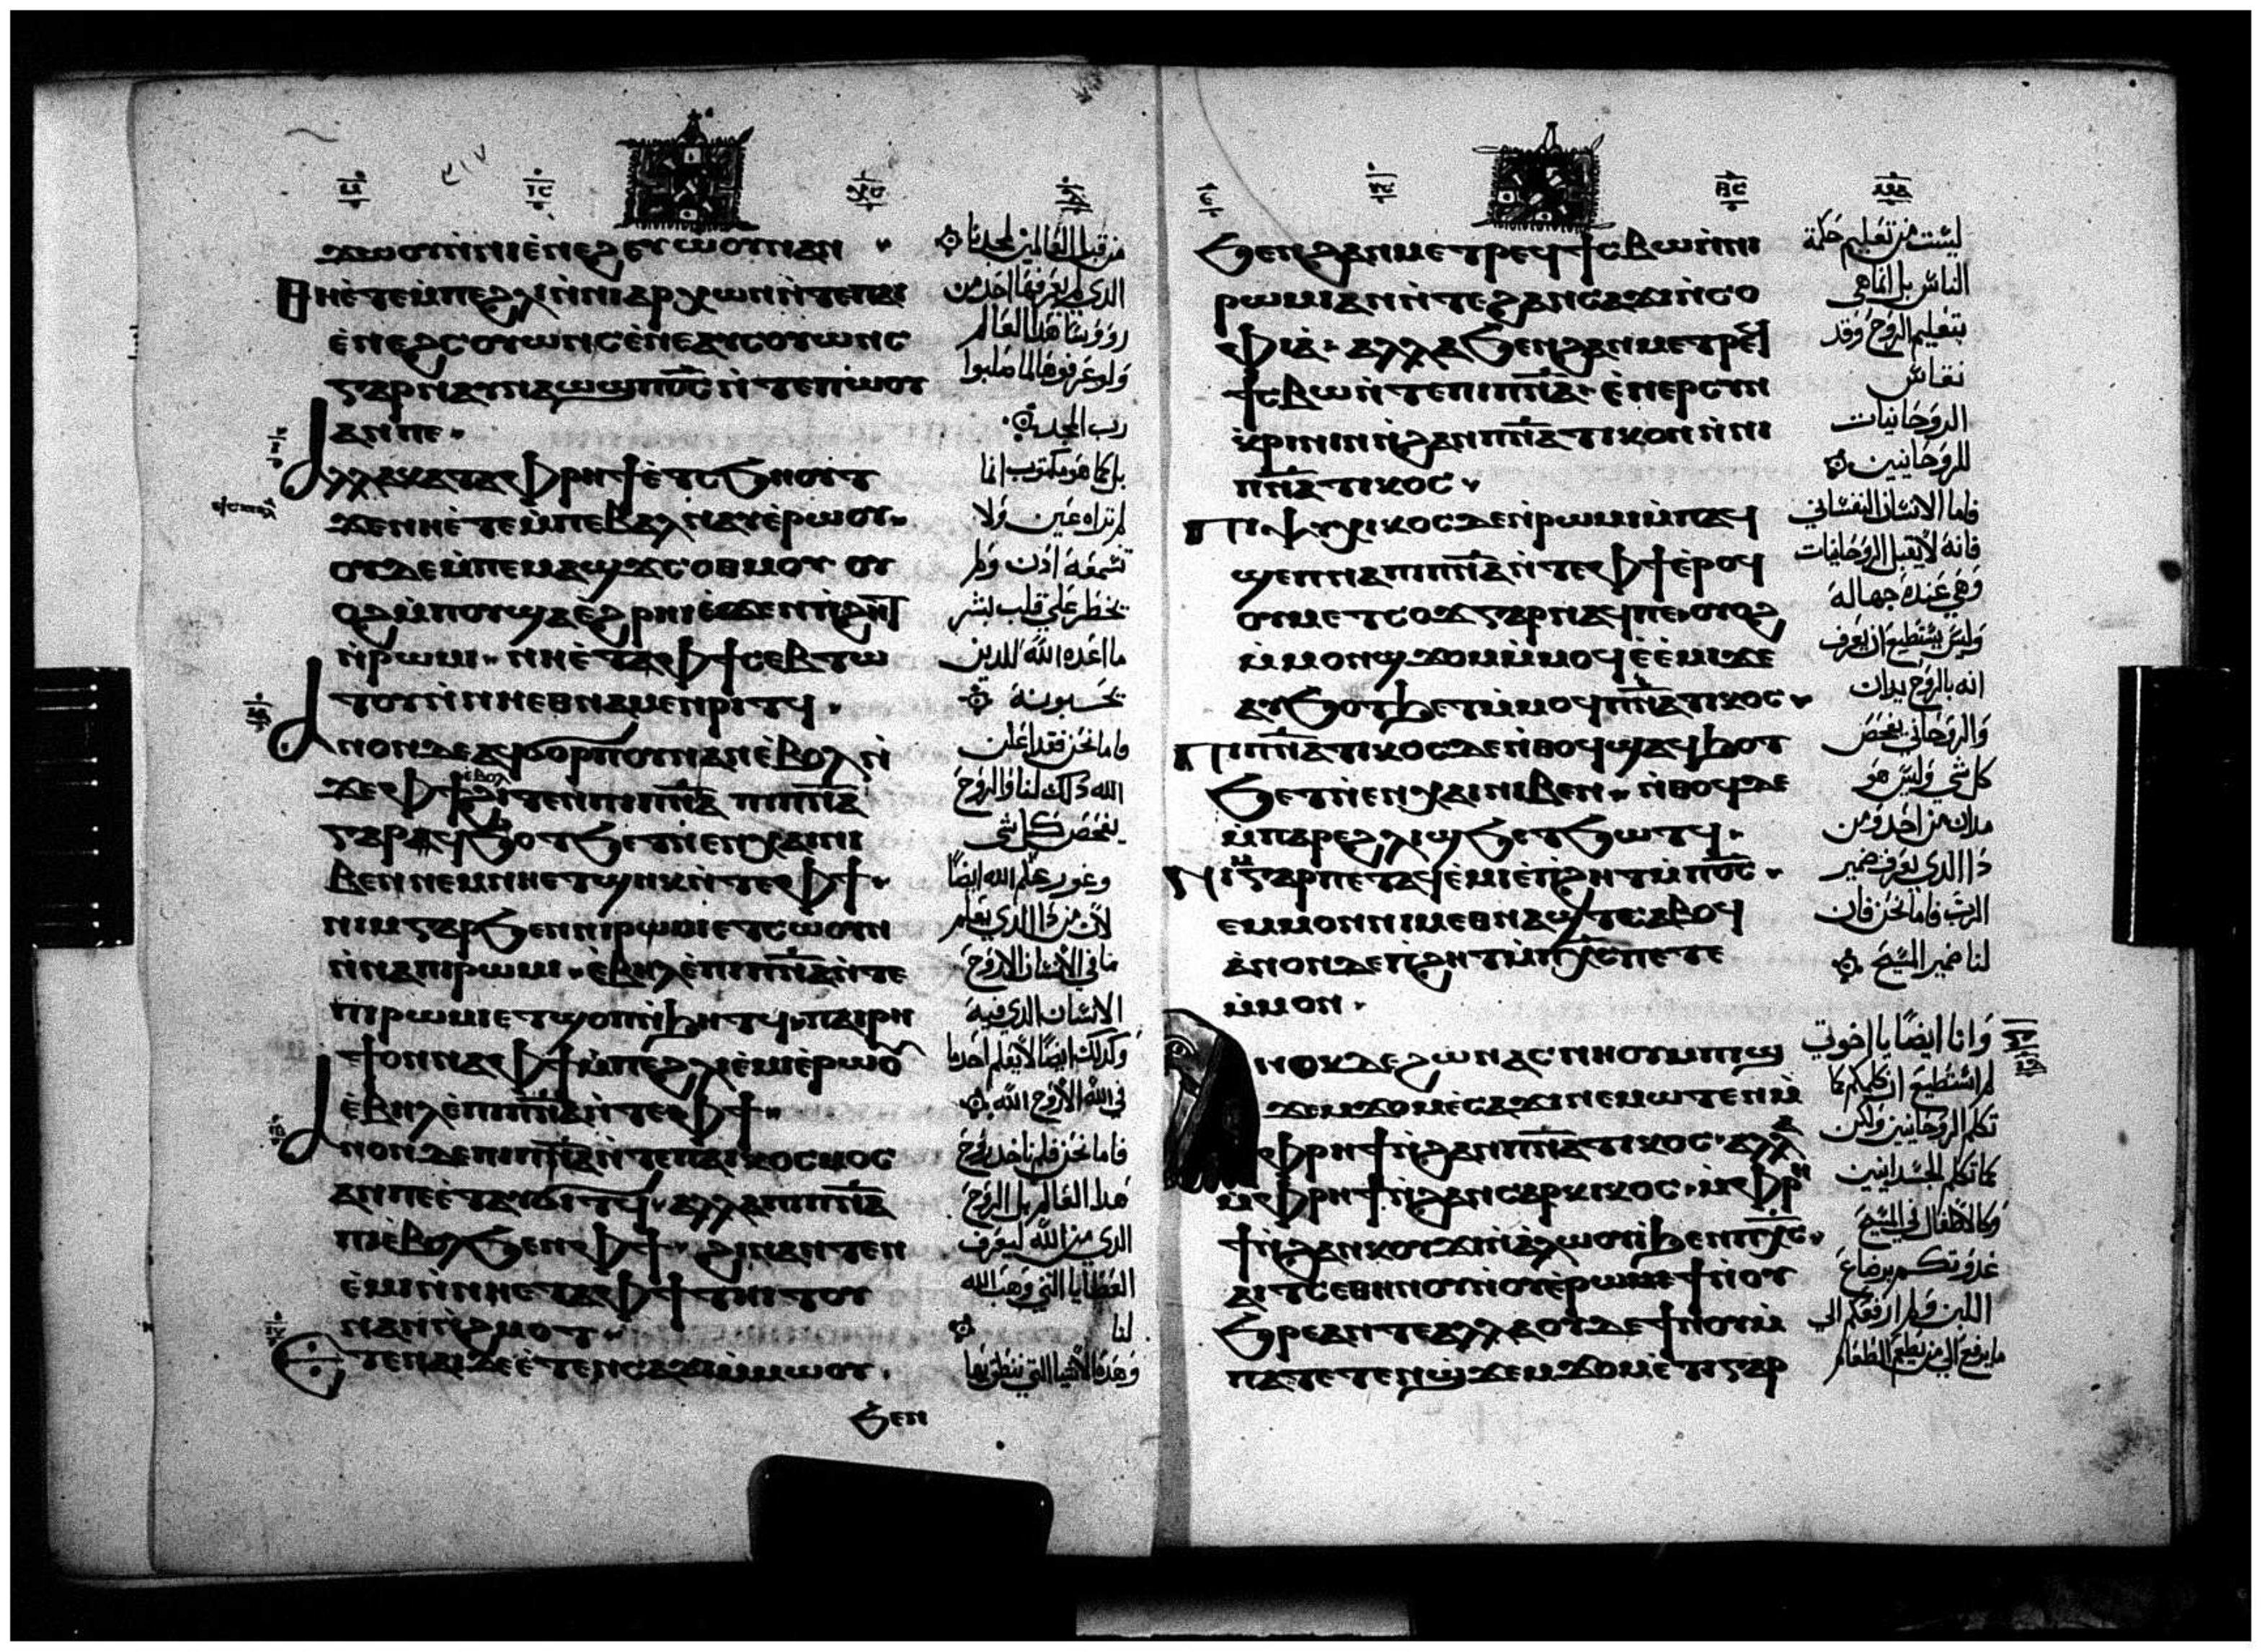 ϫⲱⲟⲩⲛ̀ⲛⲓⲉ̀ⲛⲉϩⲉⲩⲱⲟⲩⲛⲁⲛ
ⲑⲏⲉ̀ⲧⲉⲙ̀ⲡⲉϩⲗⲓⲛ̀ⲛⲓⲁⲣⲭⲱⲛⲛ̀ⲧⲉⲡⲁⲓ
ⲉ̀ⲛⲉϩⲥⲟⲩⲱⲛⲥⲉ̀ⲛⲉⲁⲩⲥⲟⲩⲱⲛⲥ
ⲅⲁⲣⲛⲁⲩⲛⲁⲱϣⲡϭ̅ⲥ̅ⲛ̀ⲧⲉⲡⲱ̀ⲟⲩ
ⲁⲛⲡⲉ
ⲁⲗⲗⲁⲕⲁⲧⲁⲫⲣⲏϯⲉ̀ⲧⲥϧⲏⲟⲩⲧ
ϫⲉⲛⲏⲉ̀ⲧⲉⲙ̀ⲡⲉⲃⲁⲗⲛⲁⲩⲉ̀ⲣⲱⲟⲩ
ⲟⲩⲇⲉⲙ̀ⲡⲉⲙⲁϣϫⲥⲟⲑⲙⲟⲩ ⲟⲩ
ⲟϩⲙ̀ⲡⲟⲩⲓ̀ⲉ̀ϩⲣⲏⲓⲉ̀ϫⲉⲛⲡϩⲏⲧ
ⲛ̀ⲣⲱⲙⲓ ⲛⲏⲉ̀ⲧⲁⲫϯⲥⲉⲃⲧⲱ
ⲧⲟⲩⲛ̀ⲛⲏⲉⲑⲛⲁⲙⲉⲛⲣⲓⲧϥ
ⲁⲛⲟⲛⲇⲉⲁϥϭⲟⲣⲡⲟⲩⲛⲁⲛⲉ̀ⲃⲟⲗⲛ̀
ϫⲉⲫϯ ⲉⲃⲟⲗ ϩⲓⲧⲉⲛⲡⲓⲡ̅ⲛ̅ⲁ̅ ⲡⲓⲡ̅ⲛ̅ⲁ̅
ⲅⲁⲣϥϧⲟⲧϧⲉⲧⲛ̀ⲉⲛⲭⲁⲓⲛⲓ
ⲃⲉⲛⲛⲉⲙⲛⲏⲉⲧϣⲏⲕⲛ̀ⲧⲉⲫϯ
ⲛⲓⲙⲅⲁⲣϧⲉⲛⲛⲓⲣⲱⲙⲓⲉⲧⲥⲱⲟⲩⲛ
ⲛ̀ⲛⲁⲡⲓⲣⲱⲙⲓ ⲉ̀ⲃⲏⲗⲉ̀ⲡⲓⲡ̅ⲛ̅ⲁ̅ⲛ̀ⲧⲉ
ⲡⲓⲣⲱⲙⲓⲉⲧϣⲟⲡⲛ̀ϧⲏⲧϥ ⲡⲁⲓⲣⲏ
ϯⲟⲛⲛⲁⲫϯⲙ̀ⲡⲉϩⲗⲓⲉ̀ⲙⲓⲉ̀ⲣⲱⲟⲩ
ⲉ̀ⲃⲏⲗⲉ̀ⲡⲓⲡ̅ⲛ̅ⲁ̅ⲛ̀ⲧⲉⲫϯ
ⲁⲛⲟⲛⲇⲉⲡⲓⲡ̅ⲛ̅ⲁ̅ⲛ̀ⲧⲉⲡⲁⲓⲕⲟⲥⲙⲟⲥ
ⲁⲛⲡⲉⲉ̀ⲧⲁⲛϭⲓⲧϥ ⲁⲗⲗⲁⲡⲓⲡ̅ⲛ̅ⲁ̅
ⲡⲓⲉ̀ⲃⲟⲗϧⲉⲛⲫϯ ϩⲓⲛⲁⲛⲧⲉⲛ
ⲉ̀ⲙⲓⲛ̀ⲛⲏⲉⲧⲁⲫϯⲧⲏⲓⲧⲟⲩ
ⲛⲁⲛⲛ̀ϩⲙⲟⲧ
ⲉⲧⲉⲛⲁⲓⲇⲉⲉ̀ⲧⲉⲛⲥⲁϫⲓⲙ̀ⲙⲱⲟⲩ
ϧⲉⲛ
من قبل العالمين لمجدنا
الذي لم يعرفها احد من
رووسا هذا العالم
ولو عرفوها لما صلبوا
رب المجد
بل كما هو مكتوب انما
لم تراه عين ولا
تسمعه اذن ولم
يخطر علي قلب بشر
ما اعده الله للذين
يحبونه
فاما نحن فقد اعلن
الله ذلك لنا والروح
يفحص كل شي
وغور علم الله ايضًا
لان من ذا الذي يعلم
ما في الانسان الا روح
الانسان الذي فيه
وكذلك ايضًا لا يعلم احد ما
في الله الا روح الله
فاما نحن فلم ناخد روح
هدا العالم بل الروح
الدي من الله لنعرف
العطايا التي وهب الله
لنا
وهذه الاشيا التي ننطق بها
ϧⲉⲛϩⲁⲛⲙⲉⲧⲣⲉϥϯⲥⲃⲱⲛ̀ⲛⲓ
ⲣⲱⲙⲓⲁⲛⲛ̀ⲧⲉϩⲁⲛⲥⲁϫⲓⲛ̀ⲥⲟ
ⲫⲓⲁ̀ ⲁⲗⲗⲁϧⲉⲛϩⲁⲛⲙⲉⲧⲣⲉϥ
ϯⲥⲃⲱⲛ̀ⲧⲉⲡⲓⲡ̅ⲛ̅ⲁ̅ ⲉ̀ⲛⲉⲣⲥⲩⲛ
ⲕⲣⲓⲛⲓⲛⲛ̀ϩⲁⲛⲡ̅ⲛ̅ⲁ̅ⲧⲓⲕⲟⲛⲛ̀ⲛⲓ
ⲡ̅ⲛ̅ⲁ̅ⲧⲓⲕⲟⲥ
ⲡⲓⲯⲩⲭⲓⲕⲟⲥⲇⲉⲛ̀ⲣⲱⲙⲓⲙ̀ⲡⲁϥ
ϣⲉⲡⲛⲁⲡⲓⲡ̅ⲛ̅ⲁ̅ⲛ̀ⲧⲉⲫϯⲉ̀ⲣⲟϥ
ⲟⲩⲙⲉⲧⲥⲟϫⲅⲁⲣⲛⲁϥⲡⲉ ⲟⲩⲟϩ
ⲙ̀ⲙⲟⲛϣϫⲟⲙⲙ̀ⲙⲟϥⲉ̀ⲉ̀ⲙⲓϫⲉ
ⲁⲩϧⲟⲧϧⲉⲧⲙ̀ⲙⲟϥⲡ̅ⲛ̅ⲁ̅ⲧⲓⲕⲟⲥ
ⲡⲓⲡ̅ⲛ̅ⲁ̅ⲧⲓⲕⲟⲥⲇⲉⲛ̀ⲑⲟϥϣⲁϥϧⲟⲧ
ϧⲉⲧⲛ̀ⲉⲛⲭⲁⲓⲛⲓⲃⲉⲛ ⲛ̀ⲑⲟϥⲇⲉ
ⲙ̀ⲡⲁⲣⲉϩⲗⲓϣϧⲉⲧϧⲱⲧϥ
ⲛⲓⲙⲅⲁⲣⲡⲉⲧⲁϥⲉ̀ⲙⲓⲉ̀ⲡϩⲏⲧⲙ̀ⲡϭ̅ⲥ̅
ⲉⲙⲙⲟⲛⲛⲓⲙⲉⲑⲛⲁϣⲧⲥⲁⲃⲟϥ
ⲁ̀ⲛⲟⲛⲇⲉⲡϩⲏⲧⲙ̀ⲡⲭ̅ⲥ̅ⲡⲉⲧⲉ
ⲙ̀ⲙⲟⲛ
ⲁⲛⲟⲕⲇⲉϩⲱⲛⲁⲥⲛⲏⲟⲩⲙ̀ⲡⲓϣ
ϫⲉⲙϫⲟⲙⲉ̀ⲥⲁϫⲓⲛⲉⲙⲱⲧⲉⲛⲙ̀
ⲫⲣⲏϯⲛ̀ϩⲁⲛⲡ̅ⲛ̅ⲁ̅ⲧⲓⲕⲟⲥ ⲁⲗⲗⲁ
ⲙ̀ⲫⲣⲏϯⲛ̀ϩⲁⲛⲥⲁⲣⲕⲓⲕⲟⲥ ⲙ̀ⲫⲣⲏ
ϯⲛ̀ϩⲁⲛⲕⲟⲩϫⲓⲛ̀ⲁ̀ⲗⲱⲟⲩⲓ̀ϧⲉⲛⲡⲭ̅ⲥ̅
ⲁⲓⲧⲥⲉⲑⲏⲛⲟⲩⲛ̀ⲟⲩⲉ̀ⲣⲱϯⲛ̀ⲟⲩ
ϧⲣⲉⲁⲛⲧⲉⲁⲗⲗⲁⲟⲩⲇⲉϯⲛⲟⲩⲙ̀
ⲡⲁⲧⲉⲧⲉⲛϣϫⲉⲙϫⲟⲙⲉ̀ⲧⲓⲅⲁⲣ
ليست من تعليم حكمة
الناس بل انما هي
بتعليم الروح وقد
نقاس
الروحانيات
للروحانيين
فاما الانسان النفساني
فانه لا يقبل الروحانيات
وهي عنده جهاله
وليس يستطيع ان يعرف
انه بالروح يدان
والروحاني يفحص
كل شي وليس هو
مدان من احد ومن
ذا الدي يعرف ضمير
الرب فاما نحن فان
لنا ضمير المسيح
وانا ايضًا يا اخوتي
لم استطيع ان اكلمكم كما
نكلم الروحانيين ولكن
كما نكلم الجسدانيين
وكالاطفال في المسيح
غدوتكم برضاع
اللبن ولم ارفعكم الي